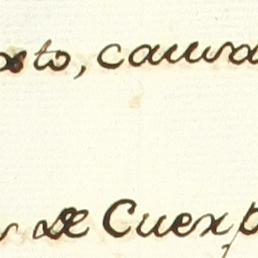 sto, causa
de Cuerp